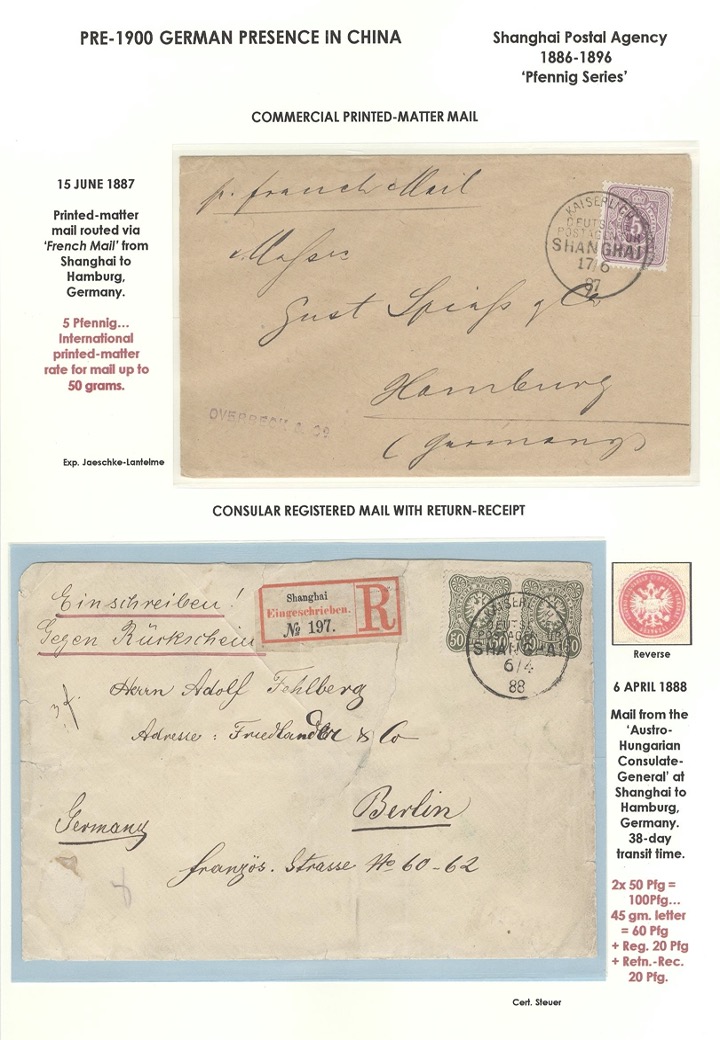 PRE-1900 GERMAN PRESENCE IN CHINA
Shanghai Postal Agency
1886-1896
‘Pfennig Series’
COMMERCIAL PRINTED-MATTER MAIL
15 JUNE 1887
Printed-matter
mail routed via
‘French Mail’ from
Shanghai to
Hamburg,
Germany.
5 Pfennig...
International
printed-matter
rate for mail up to
50 grams.
Exp. Jaeschke-Lantelme
p. french Mail
Gust Spieß & Co
Hamburg
(Germany)
OVERBECK & Co
KAISERLICH
DEUTSCHE
POSTAGENTUR
SHANGHAI
17/6
87
5
CONSULAR REGISTERED MAIL WITH RETURN-RECEIPT
Einschreiben!
Gegen Rückschein
Shanghai
Eingeschrieben.
№ 197.
R
50 50 50
KAISERLICH
DEUTSCHE
POSTAGENTUR
SHANGHAI
6/4
88
Herrn Adolf Fehlberg
Adresse: Friedlander & Co
Berlin
Germany
französ. Strasse No 60-62
Reverse
6 APRIL 1888
Mail from the
‘Austro-
Hungarian
Consulate-
General’ at
Shanghai to
Hamburg,
Germany.
38-day
transit time.
2x 50 Pfg =
100Pfg...
45 gm. letter
= 60 Pfg
+ Reg. 20 Pfg
+ Retn.-Rec.
20 Pfg.
Cert. Steuer